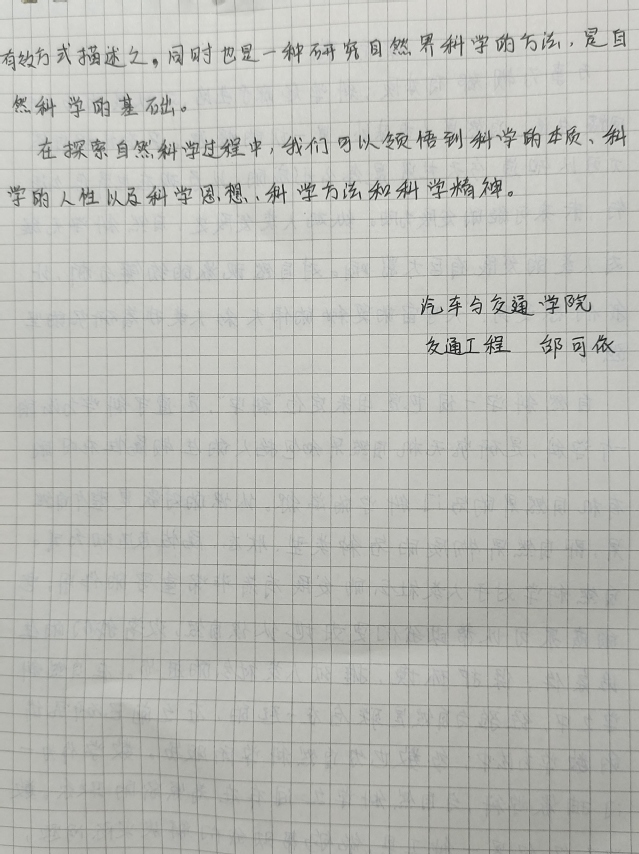 有效方式描述之。同时也是一种研究自然界科学的方法，是自
然科学的基础。
在探索自然科学过程中，我们可以领悟到科学的本质、科
学的人性以及科学思想、科学方法和科学精神。
汽车与交通学院
交通工程 邵可依